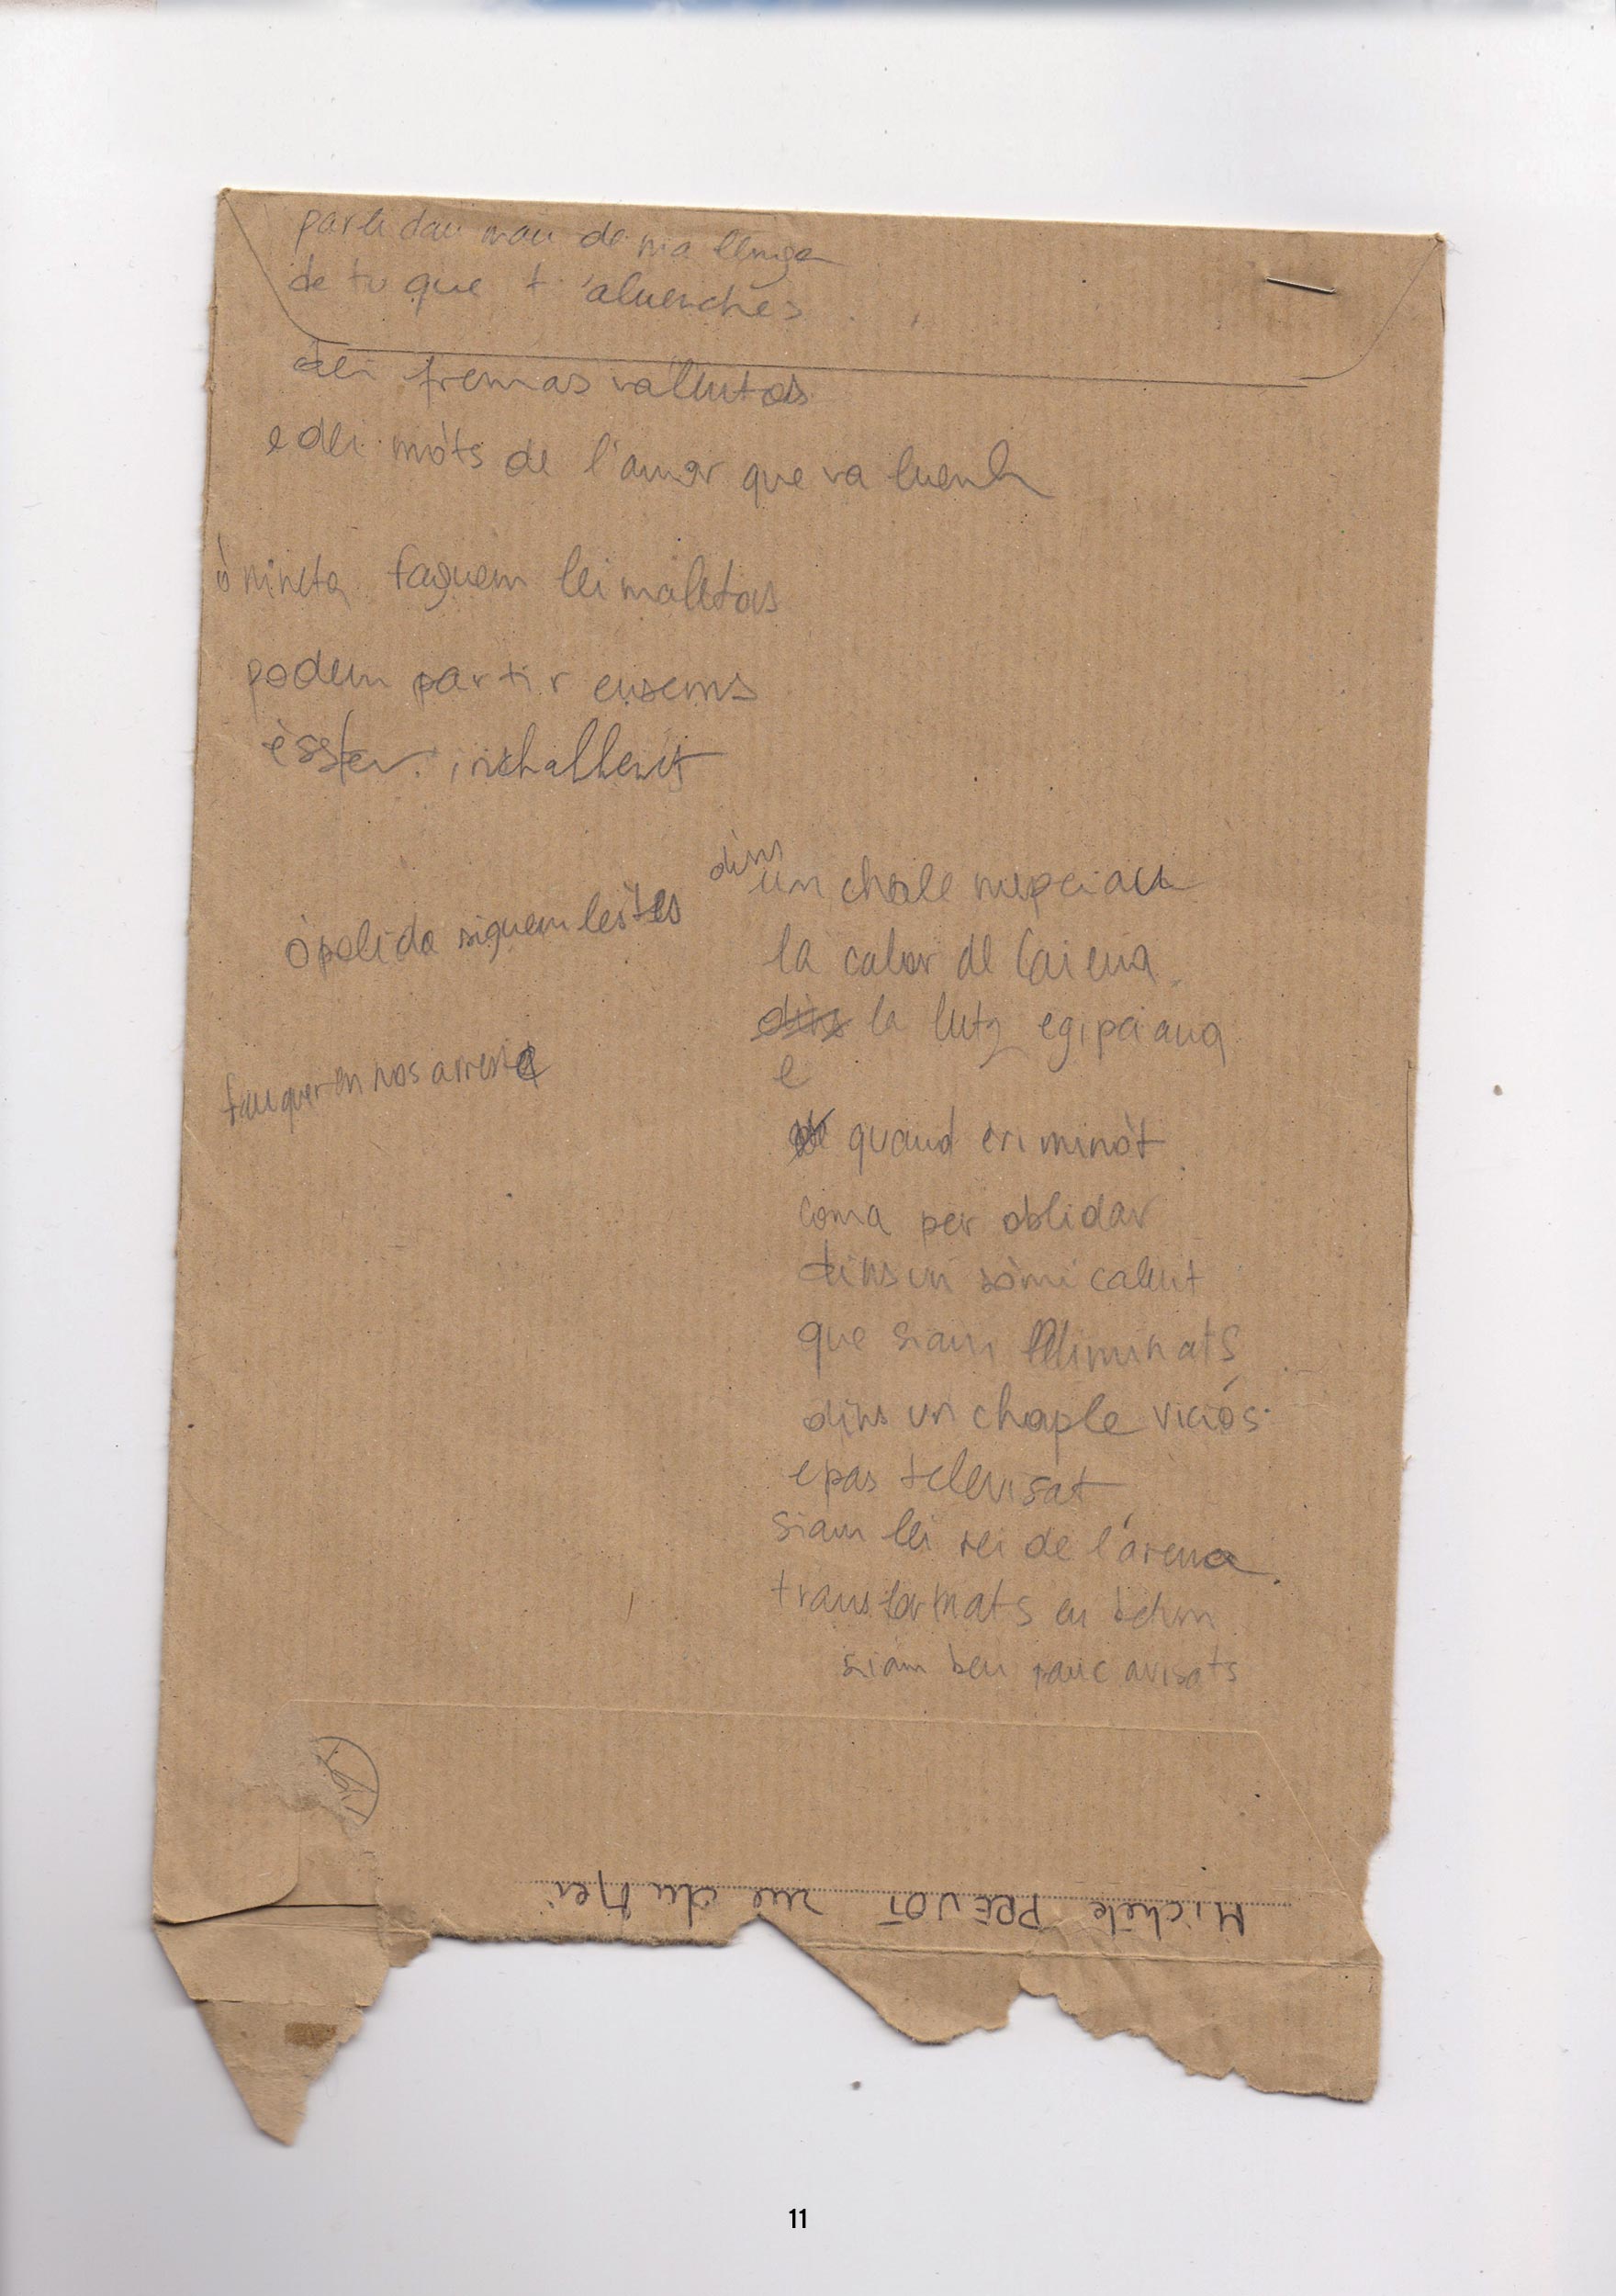 parli dau mau de ma lenga
de tu que t'aluenches
dei fremas valentas
e dei mòts de l'amor que va luenh
ò nineta faguem lei maletas
podem partir ensems
èsster
ò polida siguem lèstes
fau quer en nos arreste
dins
un chale nupciau
la calor de Caiena
dins la lutz egipciana
e
quand eri minòt
coma per oblidar
dins un sòmi calut
que siam eliminats
dins un chaple viciós
e pas televisat
siam lei rei de l'arena
transformats en
siam ben pauc avisats
Michèle PREVOT rue du
11